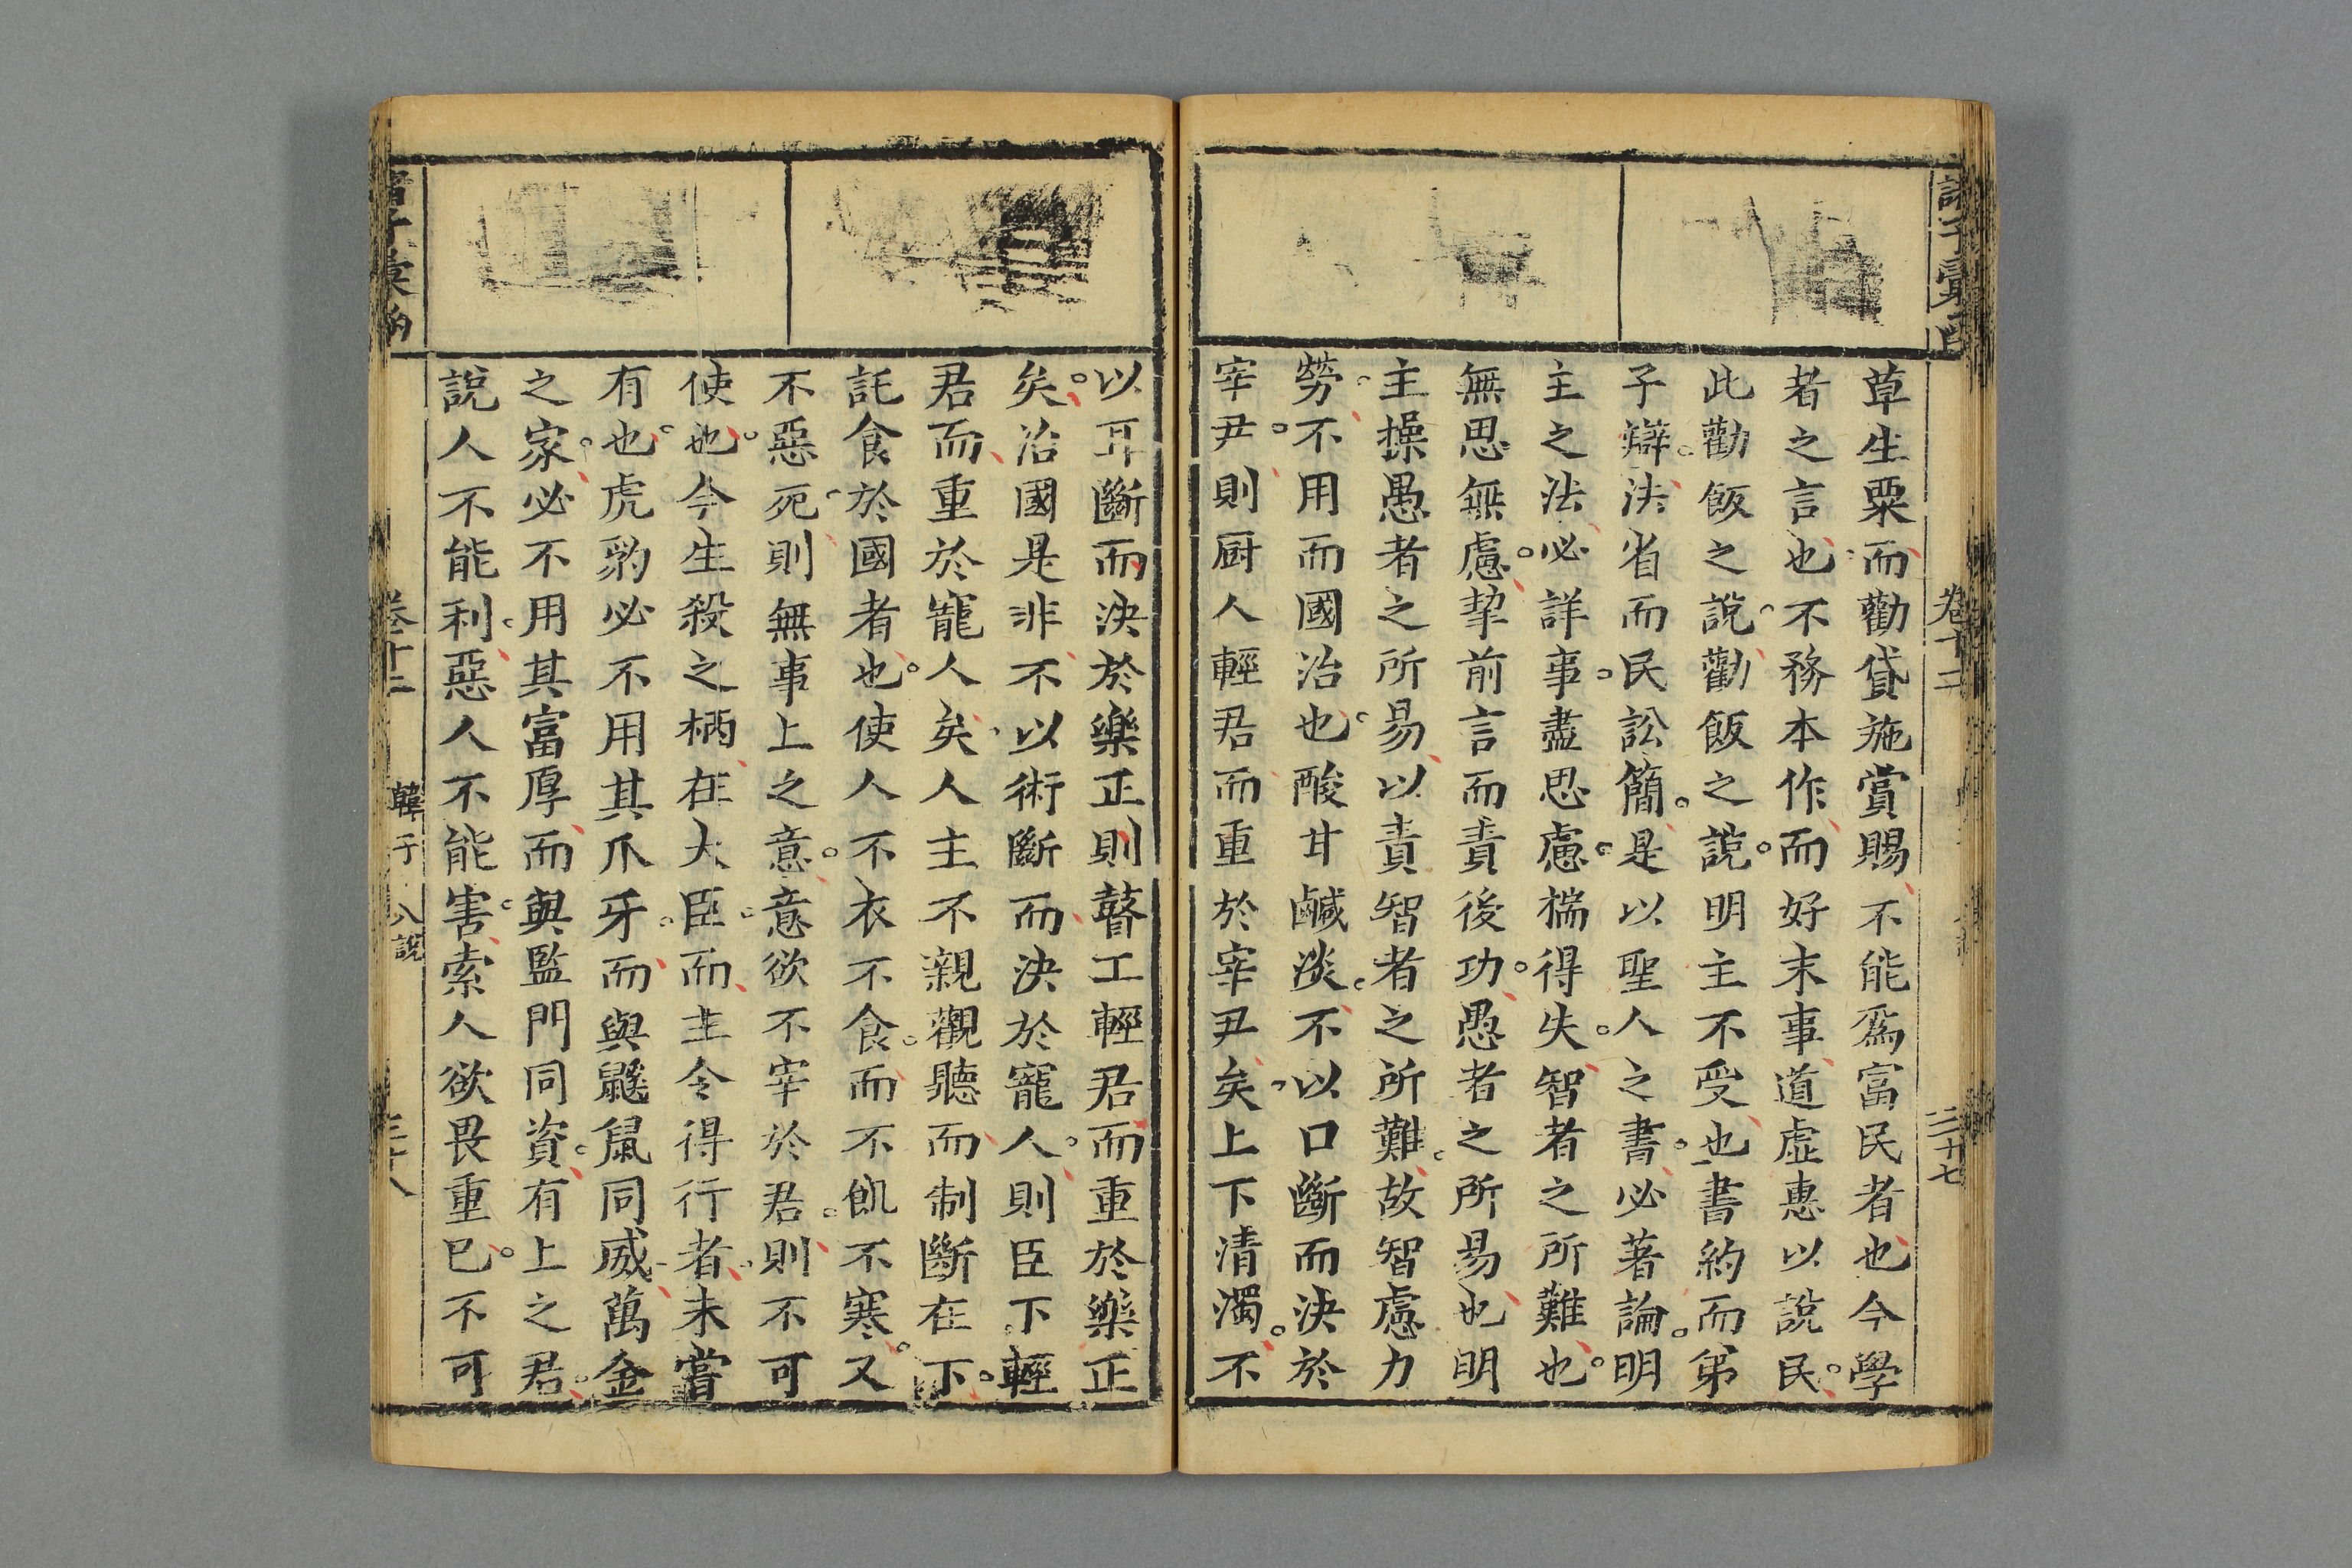 卷十二
二十七
草生粟而勸貸施賞賜不能爲富民者也今學
者之言也不務本作而好末事道虛惠以說民
此勸飯之說勸飯之說明主不受也書約而弟
子辯法省而民訟簡是以聖人之書必著論明
主之法必詳事盡思慮揣得失智者之所難也
無思無慮挈前言而責後功愚者之所易也明
主操愚者之所易以責智者之所難故智慮力
勞不用而國治也酸甘鹹淡不以口斷而決於
宰尹則厨人輕君而重於宰尹矣上下清濁不
以耳斷而決於樂正則瞽工輕君而重於樂正
矣治國是非不以術斷而決於寵人則臣下輕
君而重於寵人矣人主不親觀聽而制斷在下
託食於國者也使人不衣不食而不飢不寒又
不惡死則無事上之意意欲不宰於君則不可
使也今生殺之柄在大臣而主令得行者未嘗
有也虎豹必不用其爪牙而與鼷鼠同威萬金
之家必不用其富厚而與監門同資有上之君
說人不能利惡人不能害索人欲畏重已不可
卷十二
韓子
八說